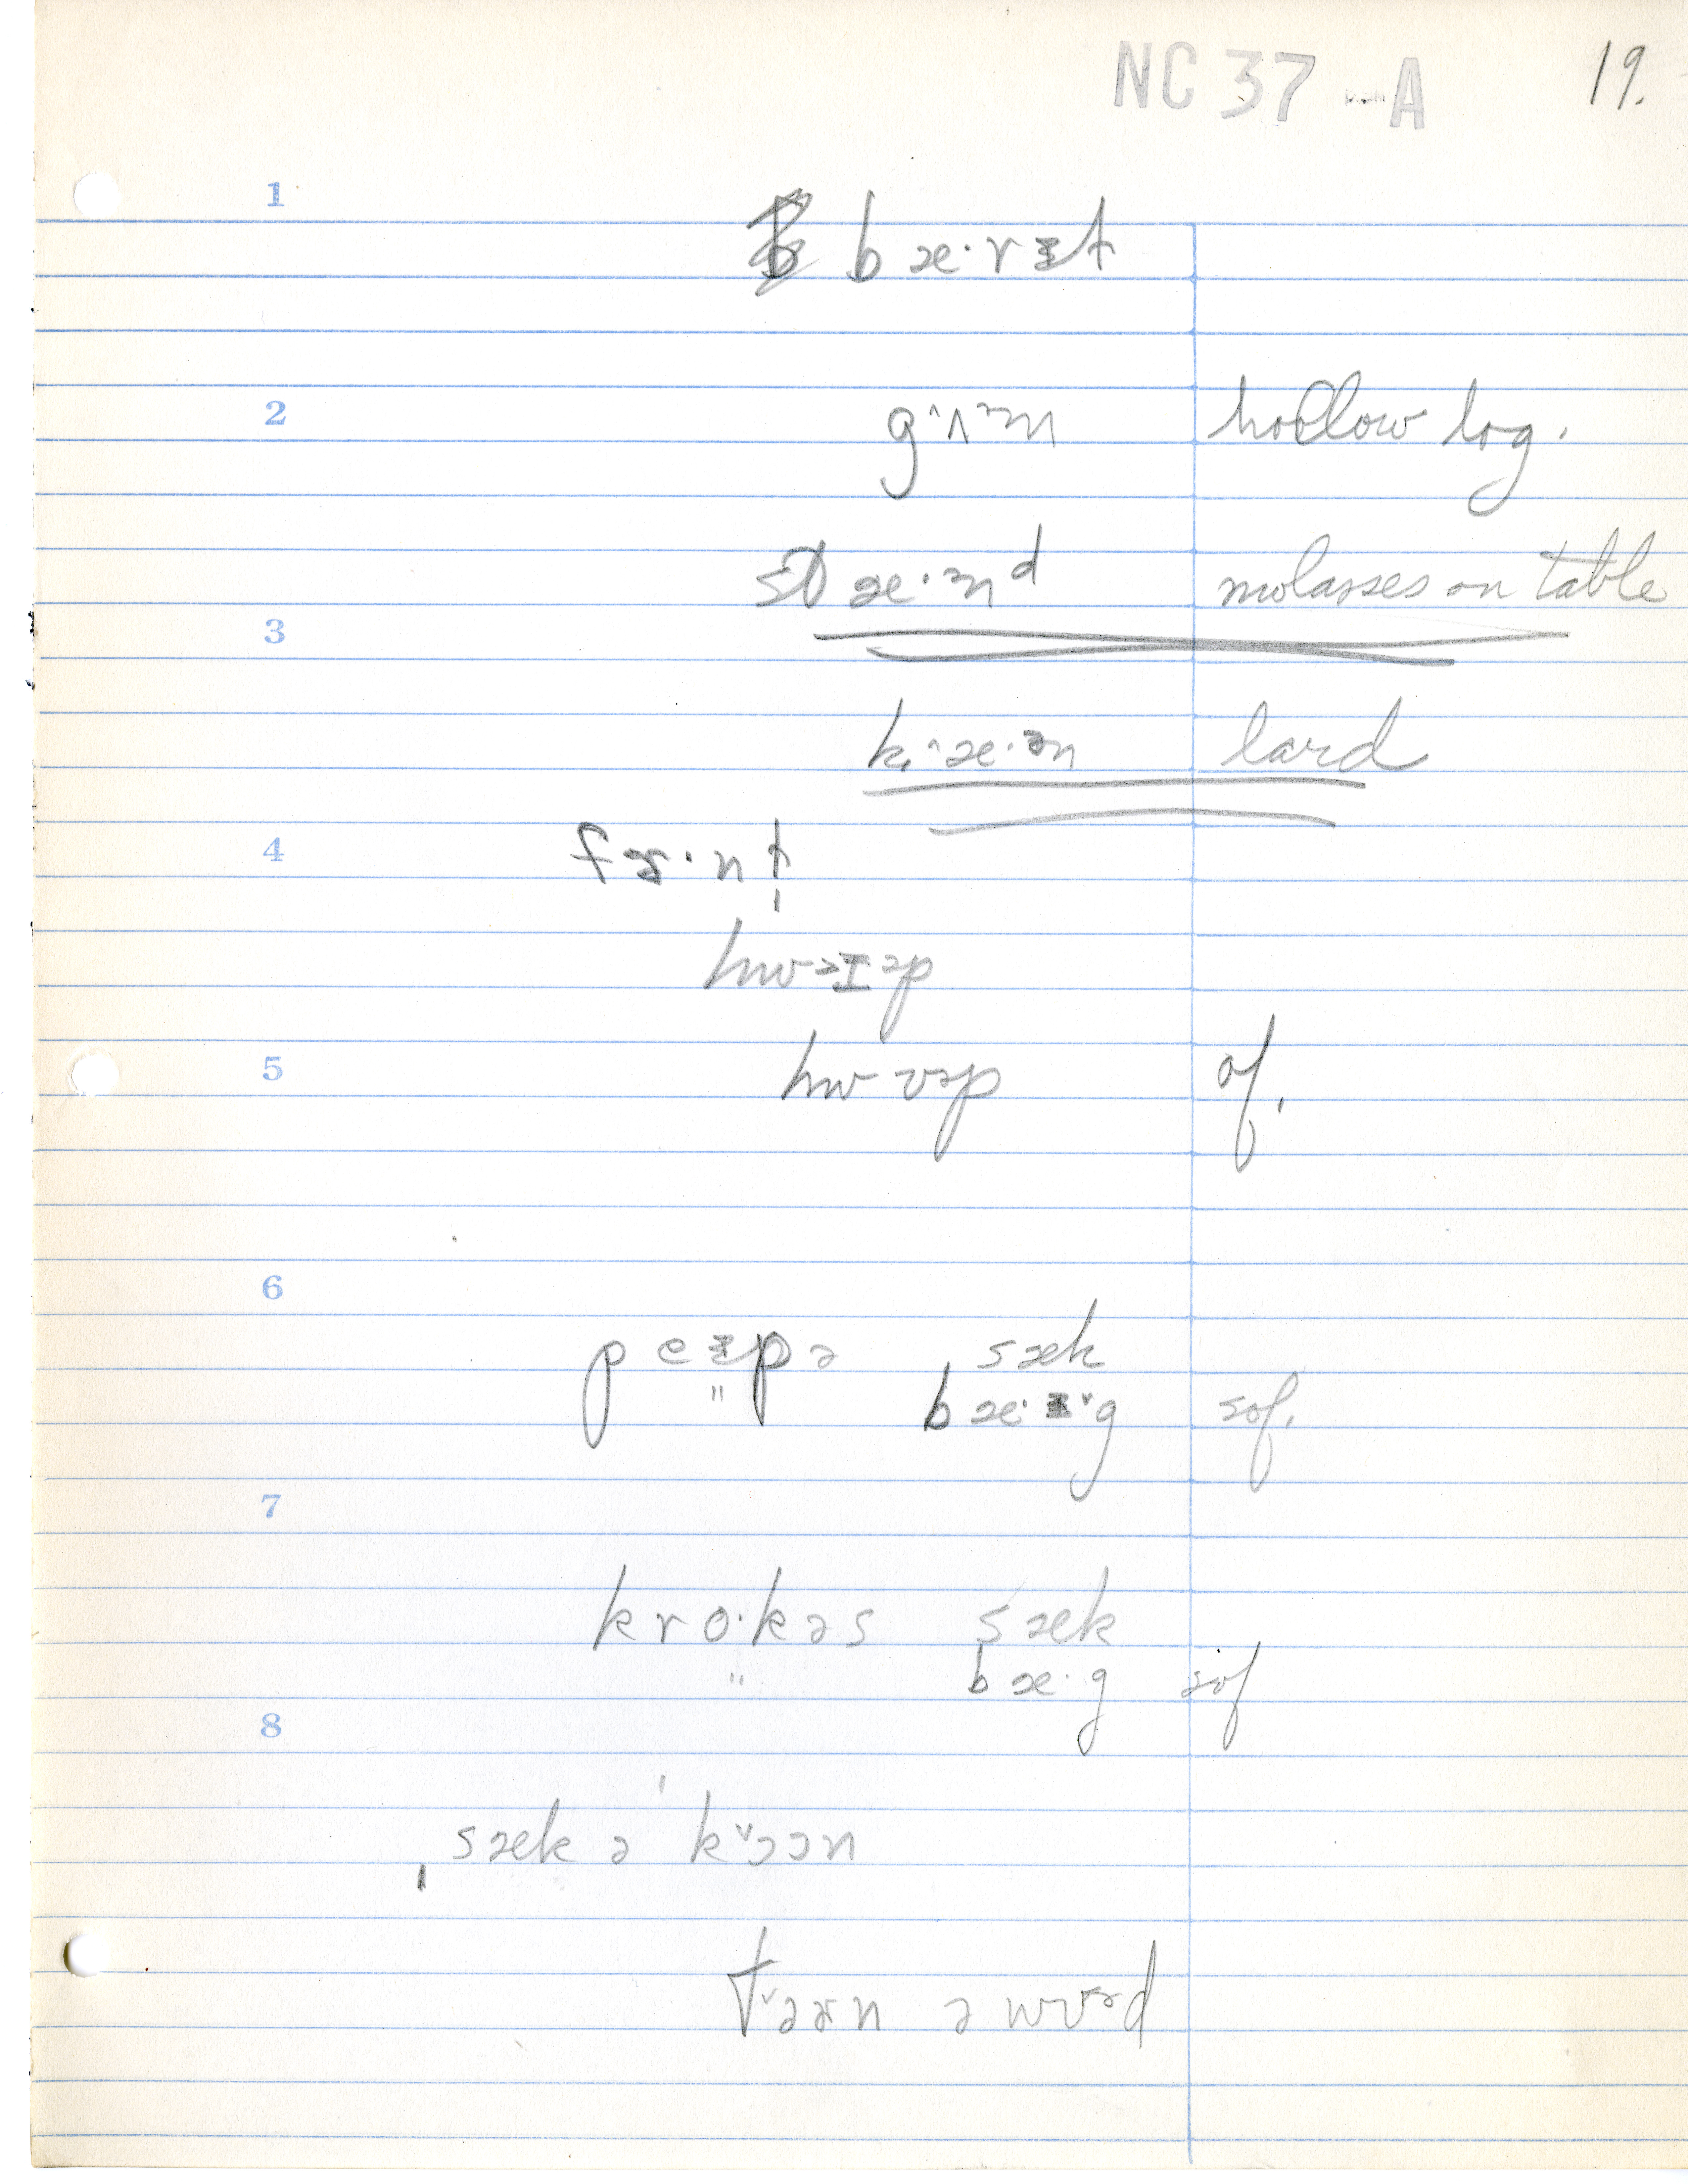 NC 37 -A 19.
1
bæ·rɪt
2
g^ʌ˞m hollow log.
st æ·nd molasses on table
3
k̟^æ·ən lard
4
fɝ·nt
hwɔɪəp
5
hwʊəp of.
6
peɪpə sæk
" bæ·ɪ˅g sof.
7
kro·kəs sæk
" bæ·g sof
8
sæk ə k˅ɔɔn
t˅ɜɝn ə wʊəd